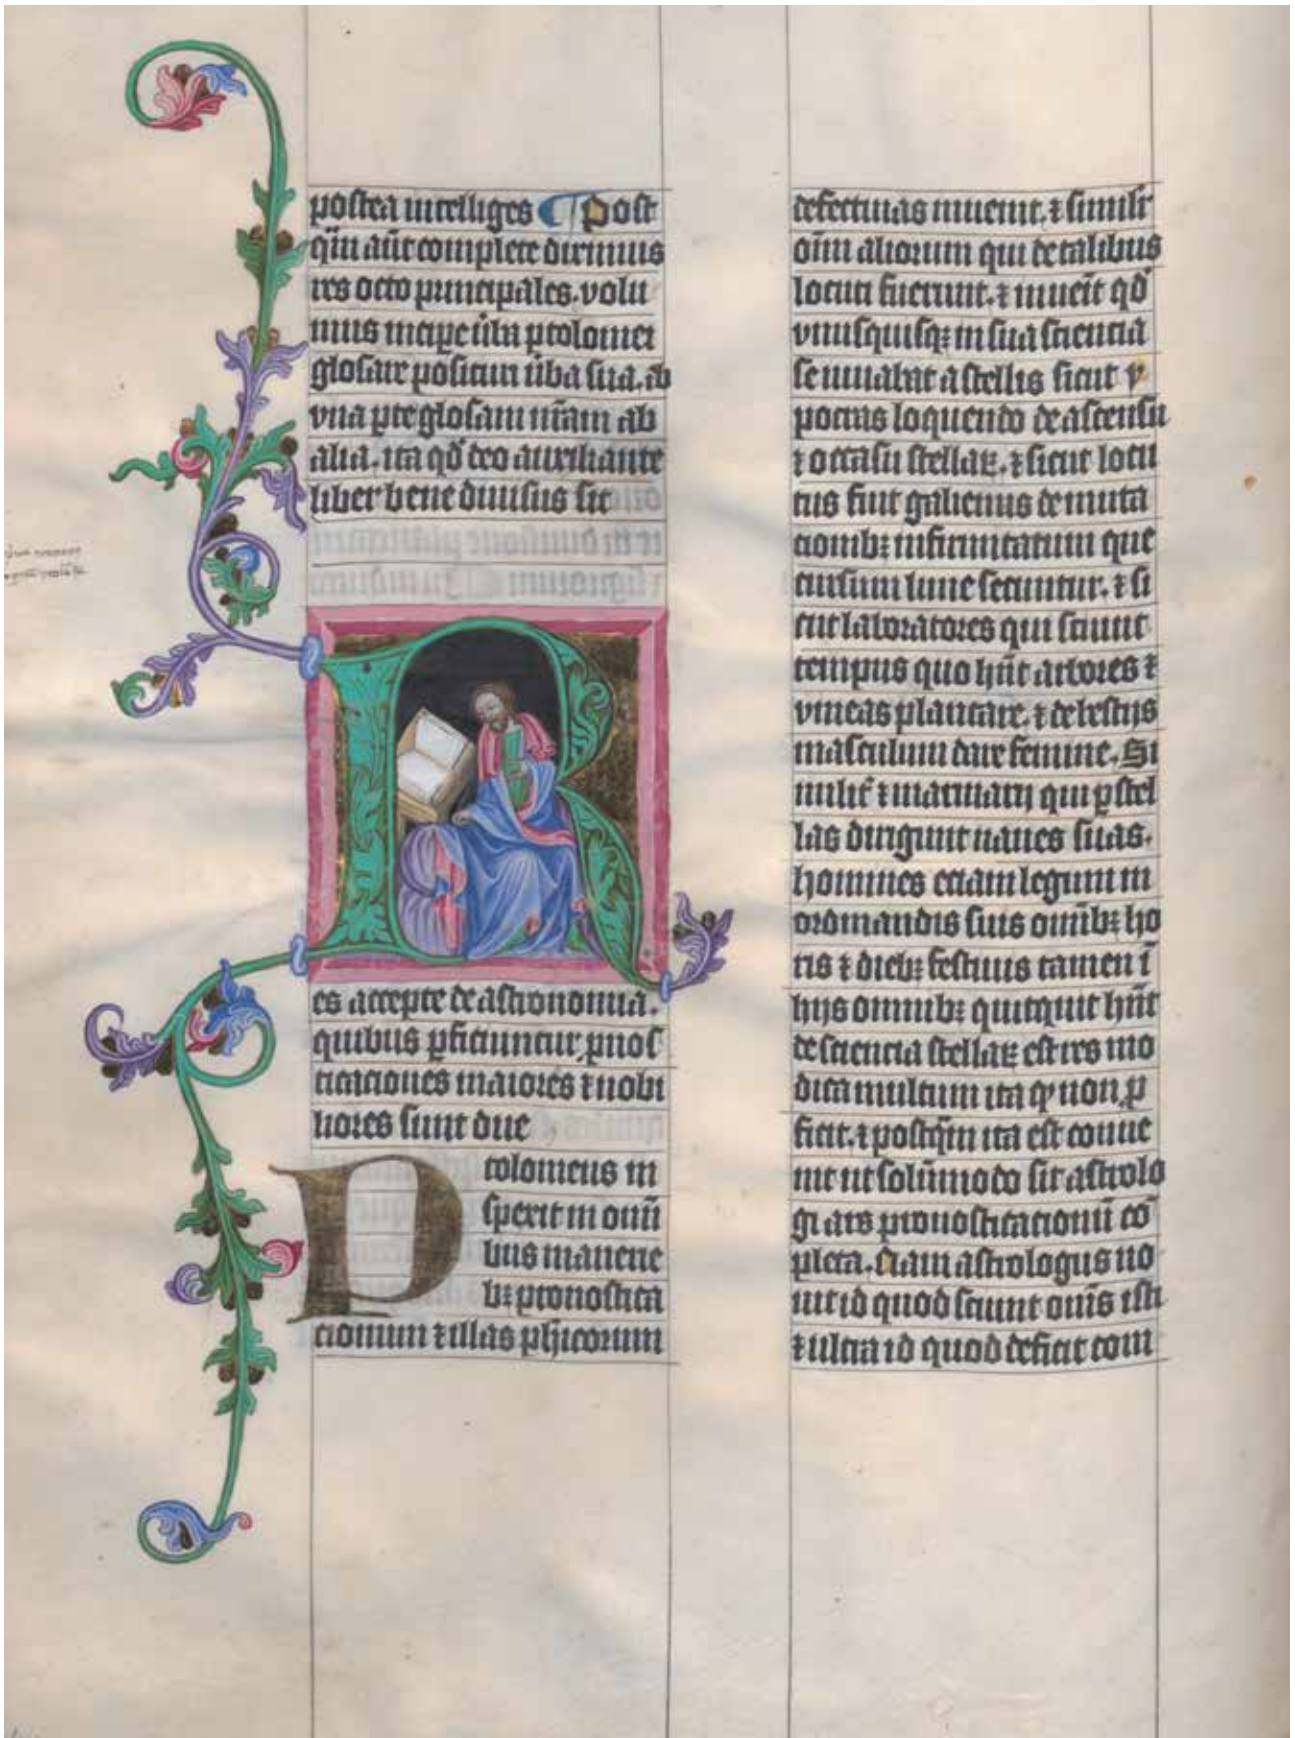 postea intelliges ¶ Post
qͫm aūt complete diximus
res octo principales. volu
mus incipe ūba ptolomei
glosare positum ūba sua. ab
vna pte glosam nr̄am ab
alia. ita qd̓ deo auxiliante
liber bene diuisus sit
R
es accepte de astronomia.
quibus ꝑficiuntur pnos
ticaciones maiores ⁊ nobi
liores sunt due
P
tolomeus in
spexit in omī
bus manerie
bꝫ pronostica
cionum ⁊ illas ph̄icorum
defectiuas inuenit. ⁊ simil̓r
om̄ aliorum qui de talibus
locuti fuerunt. ⁊ inueīt qd̓
vnusquisqꝫ in sua sciencia
se iuuabat a stellis sicut y
pocras loquendo de ascensu
⁊ occasu stellaꝝ. ⁊ sicut locu
tus fuit galienus de muta
cionibꝫ infirmitatum que
cursum lune secuntur. ⁊ si
cut laboratores qui sciunt
tempus quo hn̄t arbores ⁊
vineas plantare. ⁊ de bestijs
masculum dare femine. Si
milit̓ ⁊ marinarij qui ꝑ stel
las dirigunt naues suas.
homines eciam legum in
ordinandis suis omībꝫ ho
ris ⁊ diebꝫ festiuis tamen ī
hijs omnibꝫ quicquit hn̄t
de sciencia stellaꝝ est res mo
dica multum ita ꝙ non ꝓ
ficit. ⁊ postqͫm ita est conue
nit ut solūmodo sit astrolo
gi ars pronosticacionū cō
pleta. Nam astrologus no
uit id quod sciunt om̄s isti
⁊ ultra id quod deficit com